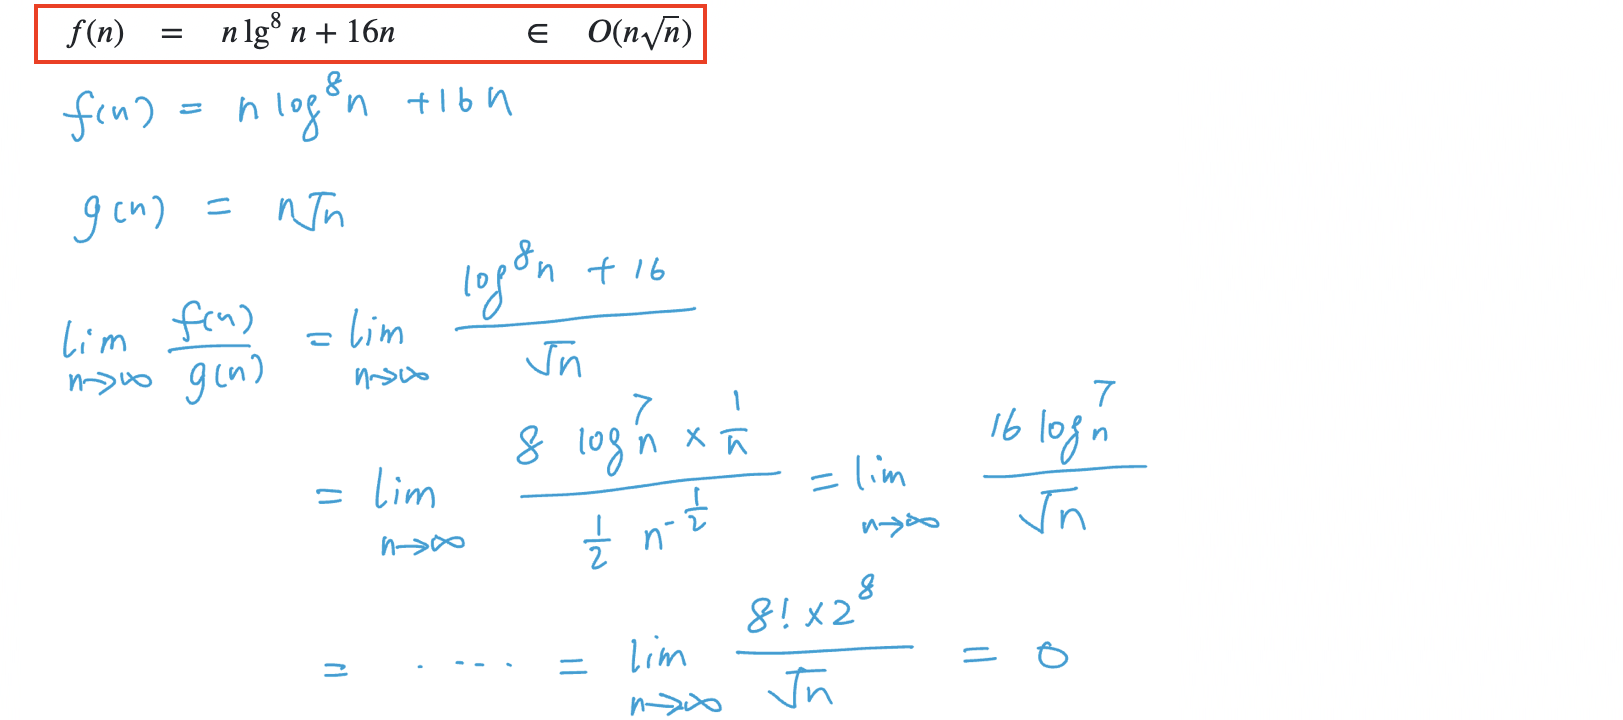 f(n) = n lg⁸ n + 16n ∈ O(n√n)
f(n) = n log⁸n + 16n
g(n) = n√n
lim n→∞ f(n)/g(n) = lim n→∞ (log⁸n + 16)/√n
= lim n→∞ (8 log⁷n × 1/n)/(1/2 n^(-1/2)) = lim n→∞ (16 log⁷n)/√n
= ..... = lim n→∞ (8! × 2⁸)/√n = 0